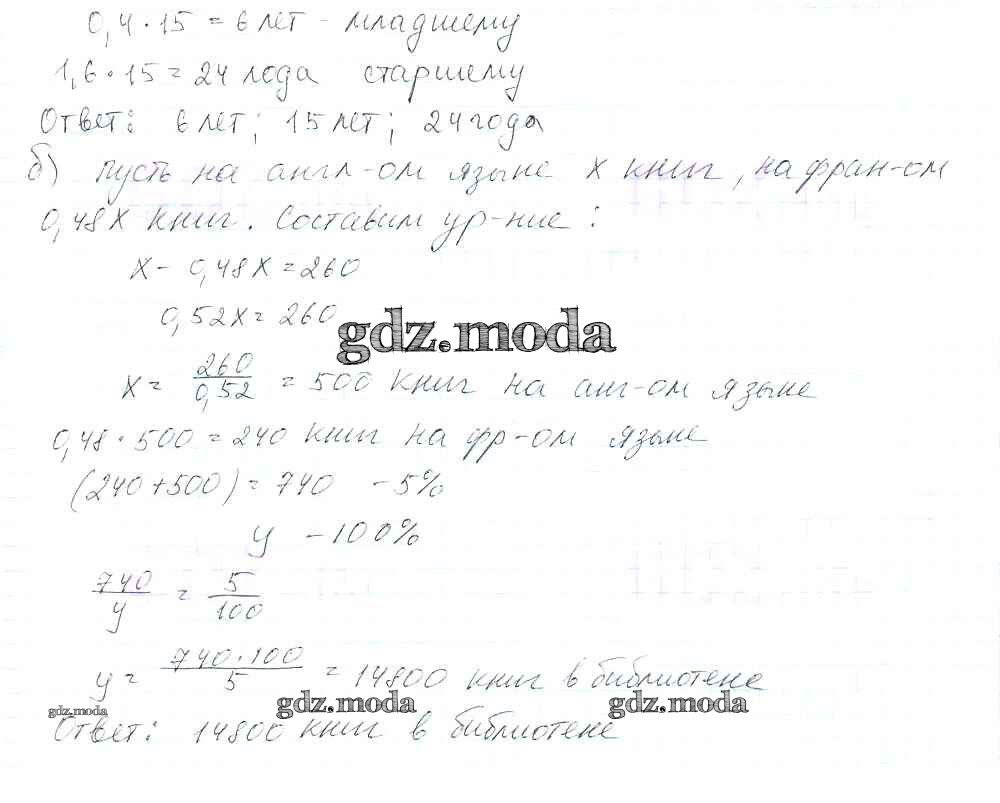 0,4 · 15 = 6 лет - младшему
1,6 · 15 = 24 года старшему
Ответ: 6 лет; 15 лет; 24 года
б) пусть на англ-ом языке x книг, на фран-ом
0,48x книг. Составим ур-ние:
x - 0,48x = 260
0,52x = 260
gdz.moda
x = 260/0,52 = 500 книг на анг-ом языке
0,48 · 500 = 240 книг на фр-ом языке
(240 + 500) = 740 - 5%
y - 100%
740/y = 5/100
y = 740·100/5 = 14800 книг в библиотеке
gdz.moda gdz.moda gdz.moda
Ответ: 14800 книг в библиотеке